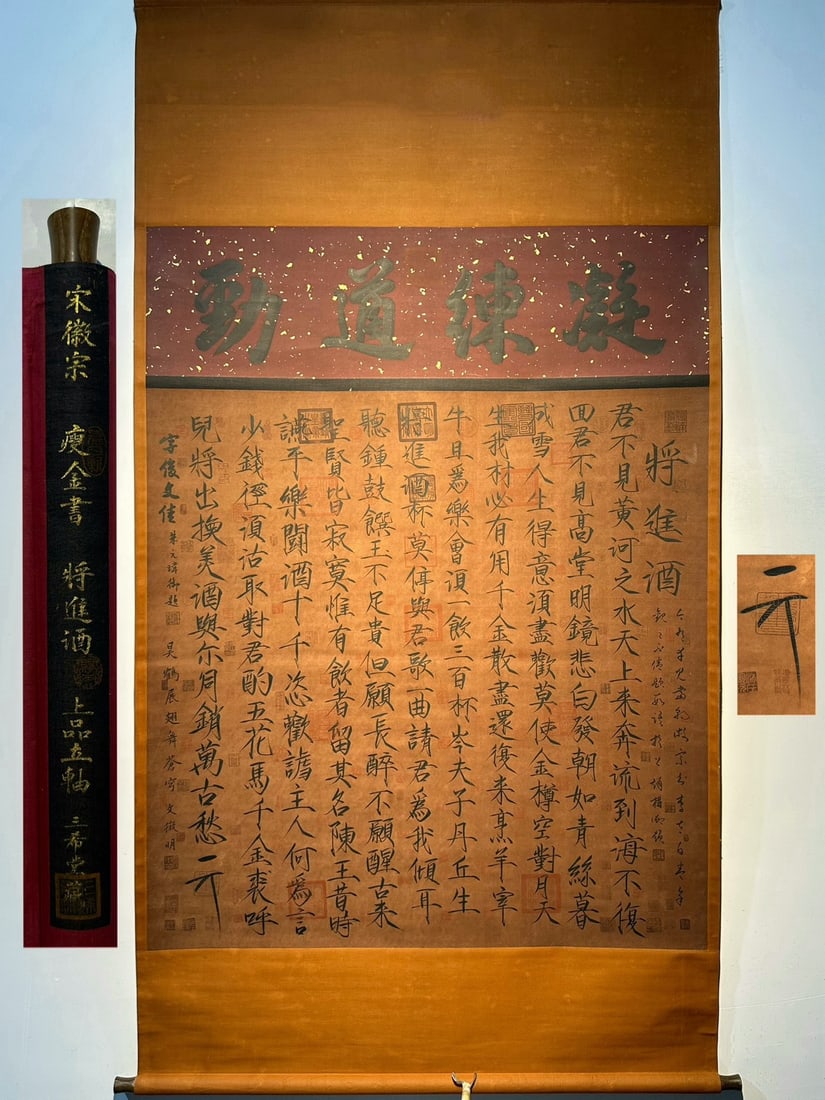 凝練遒勁
宋徽宗 瘦金書 將進酒 上品立軸 三希堂藏
將進酒
君不見黃河之水天上来奔流到海不復
回君不見高堂明鏡悲白發朝如青絲暮
成雪人生得意須盡歡莫使金樽空對月天
生我材必有用千金散盡還復来烹羊宰
牛且爲樂會須一飲三百杯岑夫子丹丘生
將進酒杯莫停與君歌一曲請君爲我傾耳
聽鍾鼓饌玉不足貴但願長醉不願醒古来
聖賢皆寂寞惟有飲者留其名陳王昔時
讌平樂鬭酒十千恣歡謔主人何爲言
少錢徑須沽取對君酌五花馬千金裘呼
兒將出換美酒與尔同銷萬古愁
字俊文佳
鶴展翅舞蒼穹 文徵明